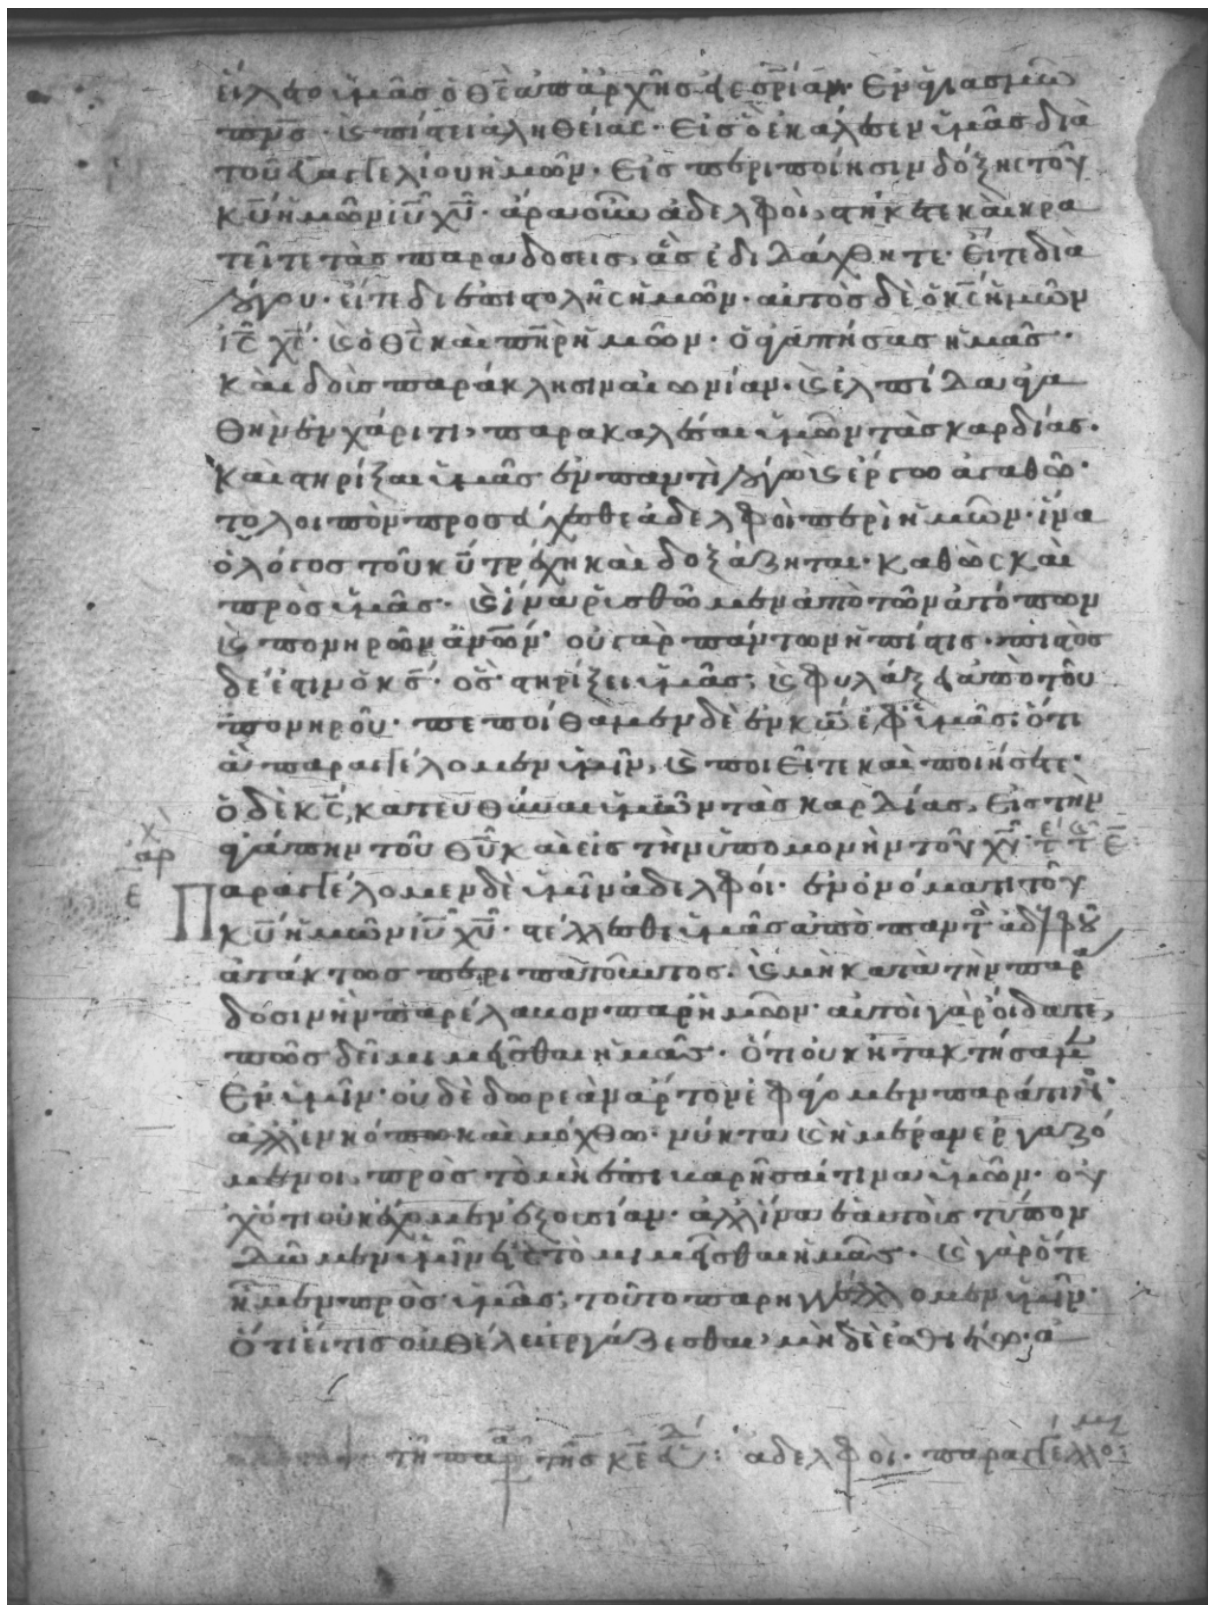 εἵλατο ὑμᾶς ὁ θς ἀπ' ἀρχῆς εἰς σρίαν· ἐν ἁγιασμῶ
πνς· καὶ πίστει ἀληθείας· εἰς ὃ ἐκάλεσεν ὑμᾶς διὰ
τοῦ εὐαγγελίου ἡμῶν· εἰς περιποίησιν δόξης τοῦ
κυ ἡμῶν ιυ χυ· ἄρα οὖν ἀδελφοὶ, στήκετε καὶ κρα
τεῖτε τὰς παραδοσεις, ἃς ἐδιδάχθητε· εἴτε διὰ
λόγου· εἴτε δι ἐπιστολῆς ἡμῶν· αὐτὸς δὲ ὁ κς ἡμῶν
ις χς· καὶ ὁ θς καὶ πηρ ἡμῶν· ὁ ἀγαπήσας ἡμᾶς·
καὶ δοὺς παράκλησιν αἰωνίαν· καὶ ἐλπίδα ἀγα
θὴν ἐν χάριτι, παρακαλέσαι ὑμῶν τὰς καρδίας·
καὶ στηρίξαι ὑμᾶς ἐν παντὶ λόγω καὶ ἔργω ἀγαθῶ·
το λοιπὸν προσεύχεσθε ἀδελφοὶ περὶ ἡμῶν· ἵνα
ὁ λόγος τοῦ κυ τρέχη καὶ δοξάζηται· καθὼς καὶ
πρὸς ὑμᾶς· καὶ ἵνα ῥυσθῶμεν ἀπὸ τῶν ἀτόπων
καὶ πονηρῶν ἀνων· οὐ γὰρ πάντων ἡ πίστις· πιστὸς
δέ ἐστιν ὁ κς· ὃς στηρίξει ὑμᾶς, καὶ φυλάξει ἀπὸ τοῦ
πονηροῦ· πεποίθαμεν δὲ ἐν κω ἐφ' ὑμᾶς· ὅτι
ἃ παραγγέλομεν ὑμῖν, καὶ ποιεῖτε καὶ ποιήσετε·
ὁ δὲ κς, κατευθύναι ὑμῶν τὰς καρδίας, εἰς τὴν
ἀγάπην τοῦ θυ καὶ εἰς τὴν ὑπομονὴν τοῦ χυ·
ἀρ
Παραγγέλομεν δὲ ὑμῖν ἀδελφοί· ἐν ὀνόματι τοῦ
κυ ἡμῶν ιυ χυ· στέλλεσθε ὑμᾶς ἀπὸ παντὸ ἀδελφοῦ
ἀτάκτως περιπατοῦντος· καὶ μὴ κατὰ τὴν παρα
δόσιν ἣν παρέλαβον παρ' ἡμῶν· αὐτοὶ γὰρ οἴδατε,
πῶς δεῖ μιμεῖσθαι ἡμᾶς· ὅτι οὐκ ἠτακτήσαμεν
ἐν ὑμῖν· οὐδὲ δωρεὰν ἄρτον ἐφάγομεν παρά τινος·
ἀλλ' ἐν κόπω καὶ μόχθω· νύκτα καὶ ἡμέραν ἐργαζό
μενοι, πρὸς τὸ μὴ ἐπιβαρῆσαί τινα ὑμῶν· οὐ
χ' ὅτι οὐκ ἔχομεν ἐξουσίαν· ἀλλ' ἵνα ἑαυτοὺς τύπον
δῶμεν ὑμῖν εἰς τὸ μιμεῖσθαι ἡμᾶς· καὶ γὰρ ὅτε
ἦμεν πρὸς ὑμᾶς, τοῦτο παρηγγέλλομεν ὑμῖν·
ὅτι εἴ τις οὐ θέλει ἐργάζεσθαι, μὴ δὲ ἐσθιέτω· ἀ
τῆ παρ τῆς κε : ἀδελφοὶ· παραγγέλλομεν